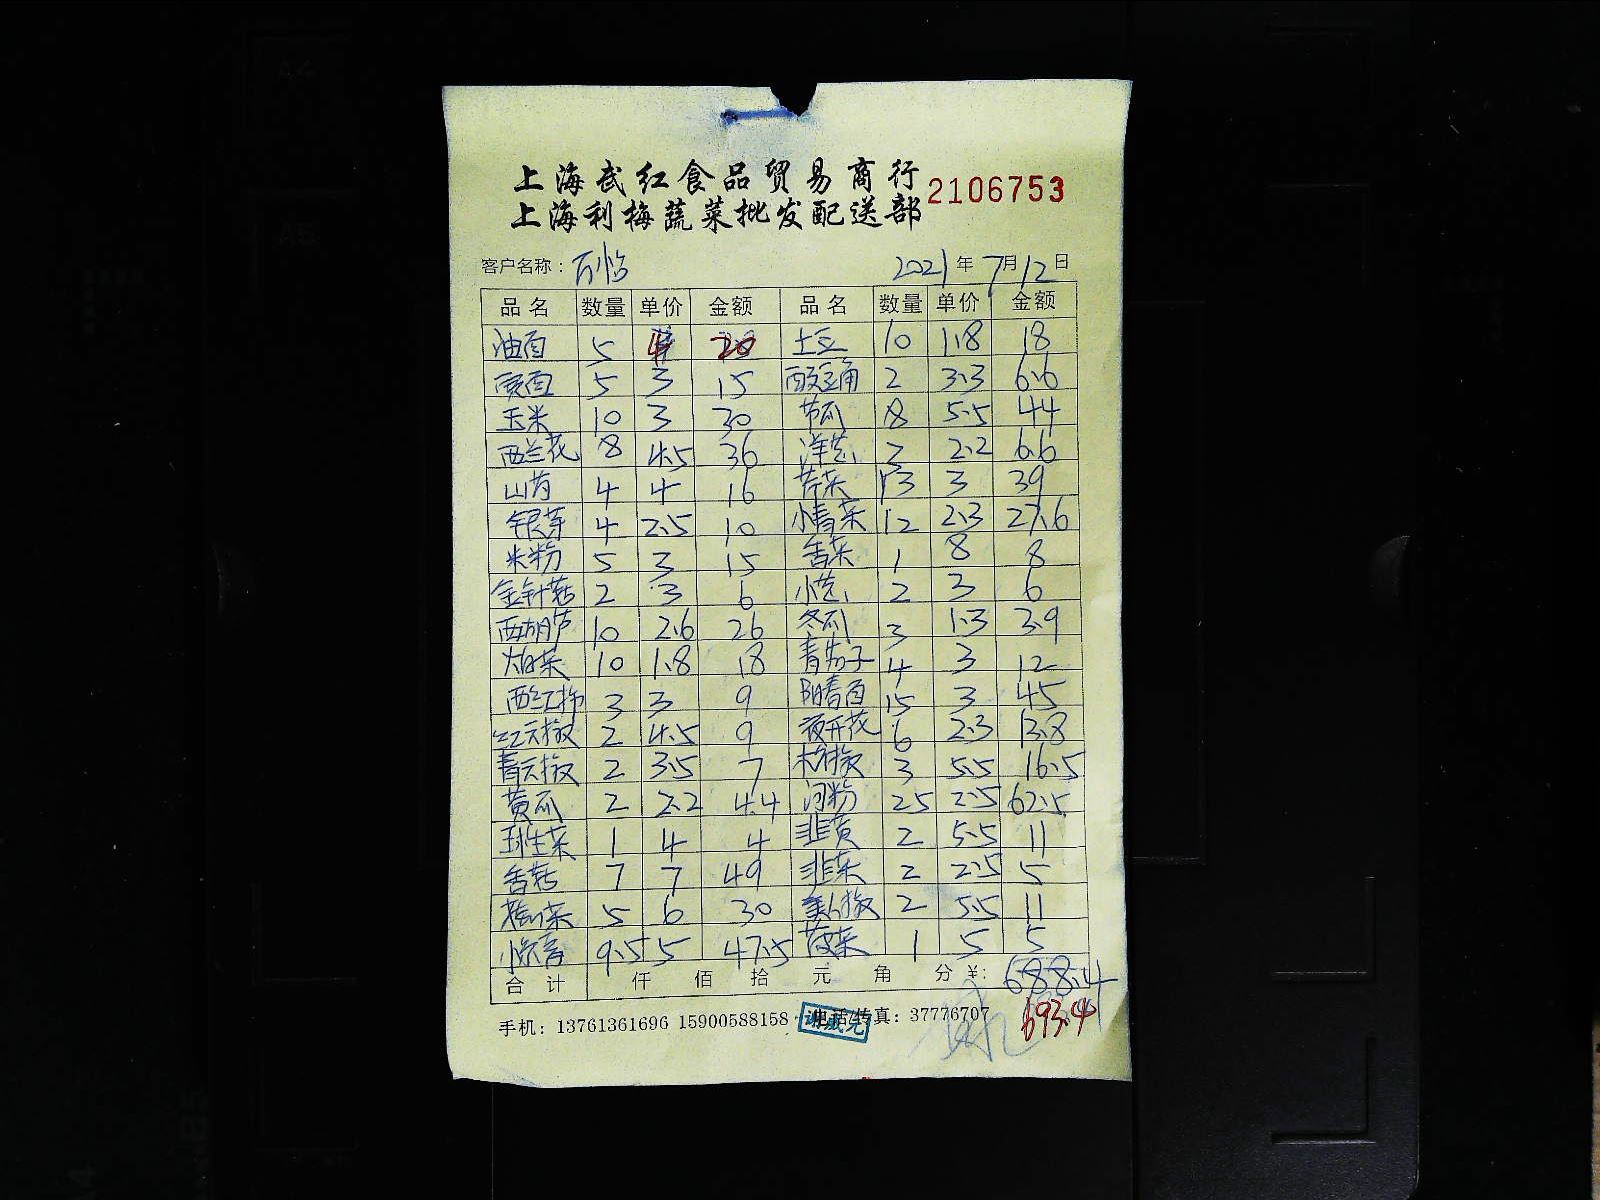 上海武红食品贸易商行
2106753
上海利梅蔬菜批发配送部
客户名称：万怡 2021年7月12日
品名 数量 单价 金额 品名 数量 单价 金额
油面 5 4 20 土豆 10 1.8 18
5 3 15 酸豆角 2 3.3 6.6
玉米 10 3 30 节瓜 8 5.5 44
西兰花 8 4.5 36 洋葱 3 2.2 6.6
山药 4 4 16 芹菜 13 3 39
银芽 4 2.5 10 小青菜 12 2.3 27.6
米粉 5 3 15 香菜 1 8 8
金针菇 2 3 6 小葱 2 3 6
西葫芦 10 2.6 26 冬瓜 3 1.3 3.9
大白菜 10 1.8 18 青茄子 4 3 12
西红柿 3 3 9 阳春面 15 3 45
红尖椒 2 4.5 9 夜开花 6 2.3 13.8
青尖椒 2 3.5 7 3 5.5 16.5
黄瓜 2 2.2 4.4 河粉 25 2.5 62.5
球生菜 1 4 4 韭黄 2 5.5 11
香菇 7 7 49 韭菜 2 2.5 5
5 6 30 美人椒 2 5.5 11
9.5 5 47.5 菠菜 1 5 5
合计 仟 佰 拾 元 角 分 ¥: 688.4
手机：13761361696 15900588158 电话/传真：37776707
693.4